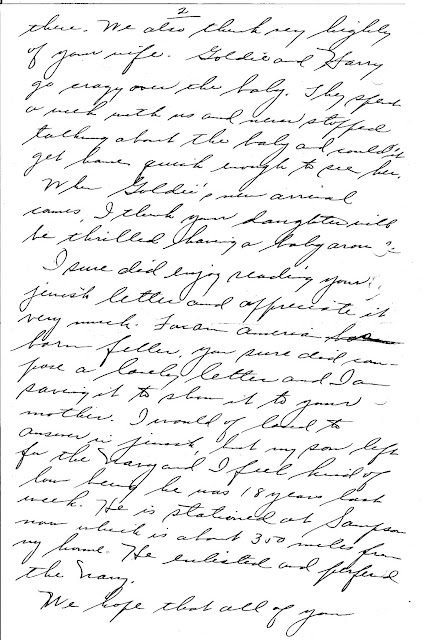 2
there. We also think very highly
of your wife. Goldie and Harry
go crazy over the baby. They spent
a week with us and never stopped
talking about the baby and couldn't
get home quick enough to see her.
When Goldie's new arrival
comes, I think your daughter will
be thrilled having a baby aroun
I sure did enjoy reading your
jewish letter and appreciate it
very much. For an America
born feller, you sure did com-
pose a lovely letter and I am
saving it to show it to your
mother. I would of loved to
answer in jewish, but my son left
for the Navy and I feel kind of
low being he was 18 years last
week. He is stationed at Sampson
now which is about 350 miles from
my home. He enlisted and prefered
the Navy.
We hope that all of you